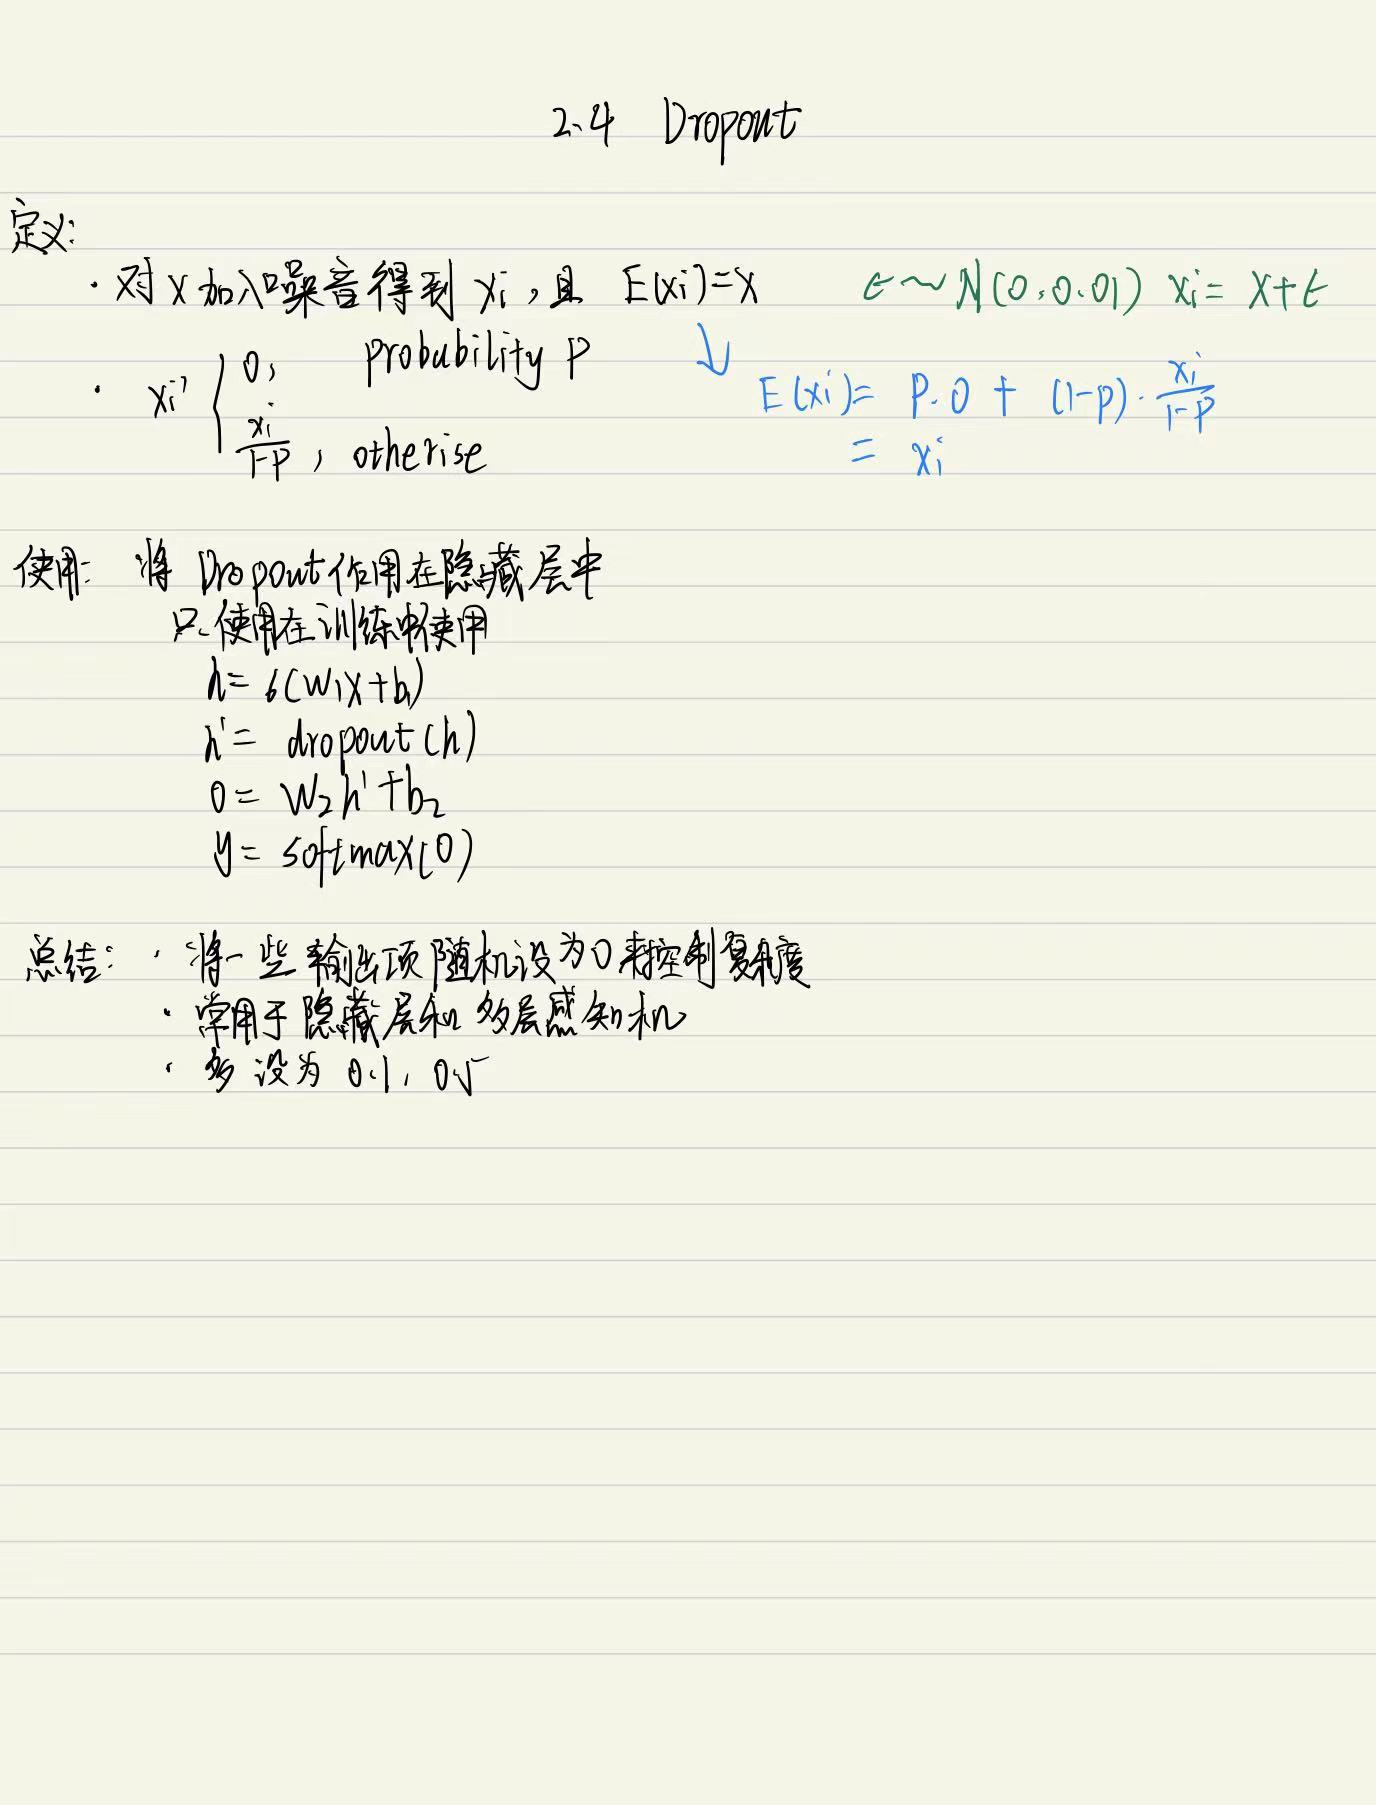 2.4 Dropout
定义:
· 对 x 加入噪音得到 xi , 且 E(xi)=x ϵ~N(0,0.01) xi = x+ϵ
· xi' { 0, probability P
xi/1-P , otherise
↓ E(xi)= P·0 + (1-p)·xi/1-P
= xi
使用: 将 Dropout作用在隐藏层中
只使用在训练中使用
h= 6(W1x+b1)
h'= dropout(h)
0= W2h'+b2
y= softmax(0)
总结: · 将一些输出项随机设为0来控制复杂度
· 常用于隐藏层和多层感知机
· 多设为 0.1, 0.5